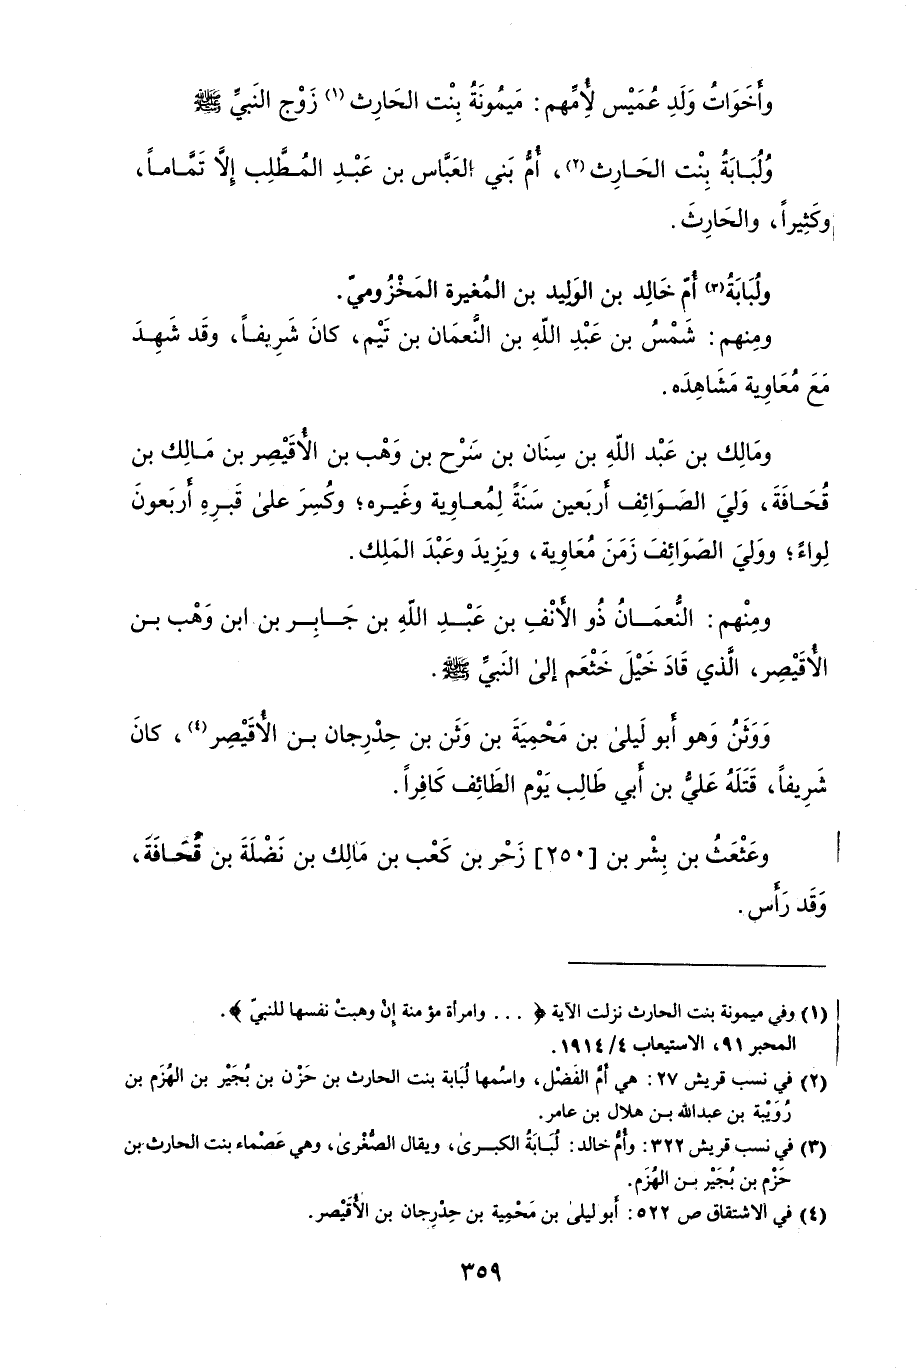 وأَخَوَاتُ وَلَدِ عُمَيْس لأُمِّهم: مَيمُونَةُ بِنْت الحَارِث (١) زَوْج النَبيِّ ﷺ
وُلُبَـابَةُ بِنْت الحَـارِث (٢)، أُمُّ بَني العَبَّاس بن عَبْـدِ المُـطَّلِب إلَّا تَمَّـامـاً،
وكَثِيراً، والحَارِثَ.
ولُبَابَةُ (٣) أُمّ خَالِد بن الوَليد بن المُغيرة المَخْزُوميّ.
ومِنهم: شَمْسُ بن عَبْدِ اللّهِ بن النَّعمَان بن تَيْم، كانَ شَرِيفـاً، وقَد شَهِـدَ
مَعَ مُعَاوِية مَشَاهِدَه.
ومَالِك بن عَبْد اللّهِ بن سِنَان بن سَرْح بن وَهْب بن الأُقَيْصِر بن مَـالِك بن
قُحَـافَةَ، وَليَ الصَـوَائِف أَربَعين سَنَةً لِمُعـاوِية وغَيـره؛ وكُسِرَ علىٰ قَبـرِهِ أَربَعونَ
لِواءً؛ ووَليَ الصَوَائِفَ زَمَنَ مُعَاوِية، ويَزِيدَ وعَبْدَ المَلِك.
ومِنْهم: النُّعمَـانُ ذُو الأَنْفِ بن عَبْـدِ اللّهِ بن جَـابِـر بن ابن وَهْب بـن
الأُقَيْصِر، الَّذي قَادَ خَيْلَ خَثْعَم إلىٰ النَبيِّ ﷺ.
وَوَثَنُ وَهو أَبو لَيلىٰ بن مَحْمِيَةَ بن وَثَن بن حِدْرِجان بـن الأُقَيْصِر (٤)، كانَ
شَرِيفاً، قَتَلَهُ عَليُّ بن أَبي طَالِب يَوْم الطَائِف كَافِراً.
وعَثْعَثُ بن بِشْر بن [٢٥٠] زَحْر بن كَعْب بن مَالِك بن نَضْلَةَ بن قُحَـافَةَ،
وَقَد رَأَس.
(١) وفي ميمونة بنت الحارث نزلت الآية ﴿ ... وامرأة مؤمنة إنْ وهبتْ نفسها للنبيّ ﴾.
المحبر ٩١، الاستيعاب ٤/ ١٩١٤.
(٢) في نسب قريش ٢٧: هي أُمُّ الفَضْل، واسُمها لُبَابة بنت الحارث بن حَزْن بن بُجَيْر بن الهُزَم بن
رُوَيْبة بن عبدالله بـن هلال بن عامر.
(٣) في نسب قريش ٣٢٢: وأُمُّ خالد: لُبَـابَةُ الكبـرىٰ، ويقال الصُّغْرىٰ، وهي عَصْماء بنت الحارث بن
حَزْم بن بُجَيْر بـن الهُزَم.
(٤) في الاشتقاق ص ٥٢٢: أَبو ليلىٰ بن مَحْمِية بن حِدْرجان بن الأُقَيْصر.
٣٥٩